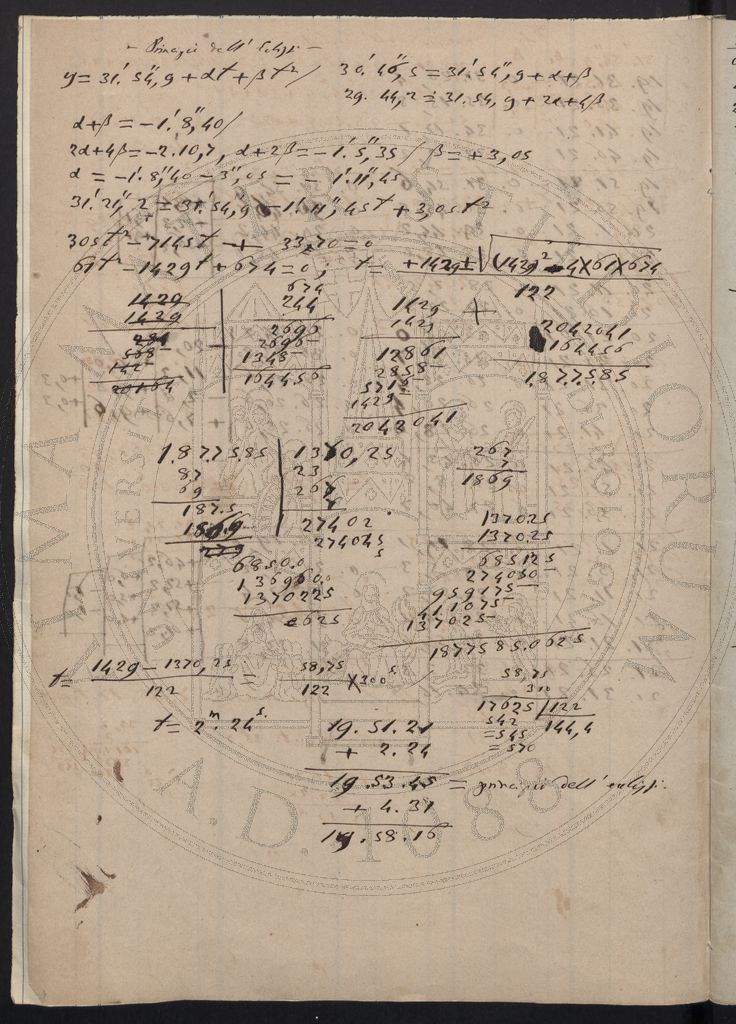 - Principio dell' Eclisse -
y = 31.' 54,'' 9 + αt + βt² / 30.' 46,'' 5 = 31.' 54,'' 9 + α + β
29. 44, 2 = 31. 54, 9 + 2α + 4β
α + β = -1.' 8,'' 40 /
2α + 4β = -2. 10, 7, α + 2β = -1.' 5,'' 35 / β = + 3,05
α = -1.' 8,'' 40 - 3,'' 05 = -1.' 11,'' 45
31.' 21,'' 2 = 31.' 54,'' 9 - 1.' 11,'' 45t + 3,05t²
305t² - 7145t + 33,70 = 0
61t² - 1429t + 674 = 0 ; t = +1429 ± √(1429)² - 4×61×674
122
1429
1429
284
568
142
20164
674
244
2696
2696
1348
164456
1429
1429
12861
2858
5716
1429
2042041
2042041
164456
1.87.75.85
1.87.75.85 | 1370,25
87 23
69 267
187.5
1869
27402
274045
5
6850.0
136960.0
1370225
0625
267
7
1869
137025
137025
685125
274050
959175
411075
137025
1877585.0625
t = 1429 - 1370,25 = 58,75 × 300ˢ
122 122
58,75
300
17625 | 122
542 144,4
= 545
= 570
t = 2ᵐ. 24ˢ.
19. 51. 21
+ 2. 24
19. 53. 45 = principio dell' eclisse.
+ 4. 31
19. 58. 16
ALMA MATER STUDIORUM
UNIVERSITÀ DI BOLOGNA
A.D. 1088